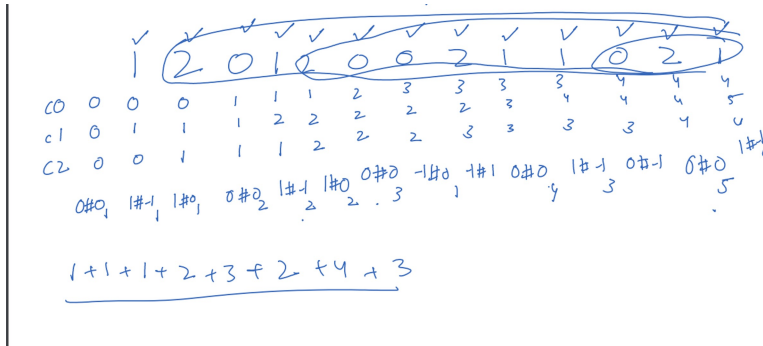 ✓ ✓ ✓ ✓ ✓ ✓ ✓ ✓ ✓ ✓ ✓ ✓ ✓
1 2 0 1 2 0 0 2 1 1 0 2 1
c0 0 0 0 1 1 1 2 3 3 3 3 4 4 4
c1 0 1 1 1 2 2 2 2 2 3 4 4 4 5
c2 0 0 1 1 1 2 2 2 3 3 3 3 4 4
0#0, 1#-1, 1#0, 0#0 1#-1 1#0 0#0 -1#0 -1#1 0#0 1#-1 0#-1 0#0 1#-1
1 1 1 2 2 2 3 1 4 3 5
1+1+1+2+3+2+4+3